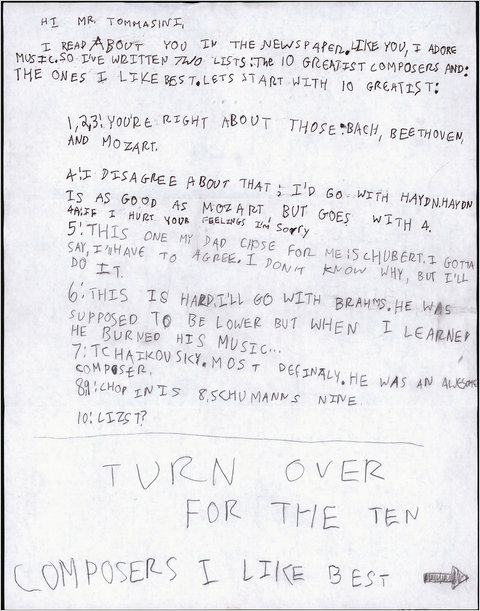 HI MR. TOMMASINI,
I READ ABOUT YOU IN THE NEWSPAPER. LIKE YOU, I ADORE
MUSIC. SO I'VE WRITTEN TWO LISTS: THE 10 GREATIST COMPOSERS AND:
THE ONES I LIKE BEST. LETS START WITH 10 GREATIST:
1,2,3: YOU'RE RIGHT ABOUT THOSE: BACH, BEETHOVEN,
AND MOZART.
4: I DISAGREE ABOUT THAT; I'D GO WITH HAYDN. HAYDN
IS AS GOOD AS MOZART, BUT GOES WITH 4.
4A: IF I HURT YOUR FEELINGS I'M SORRY
5: THIS ONE MY DAD CHOSE FOR ME: SCHUBERT. I GOTTA
SAY, I'LL HAVE TO AGREE. I DON'T KNOW WHY, BUT I'LL
DO IT.
6: THIS IS HARD. I'LL GO WITH BRAHMS. HE WAS
SUPPOSED TO BE LOWER BUT WHEN I LEARNED
HE BURNED HIS MUSIC...
7: TCHAIKOVSKY. MOST DEFINALY. HE WAS AN AWESOME
COMPOSER.
8,9: CHOPIN IS 8. SCHUMANNS NINE.
10: LIZST?
TURN OVER
FOR THE TEN
COMPOSERS I LIKE BEST